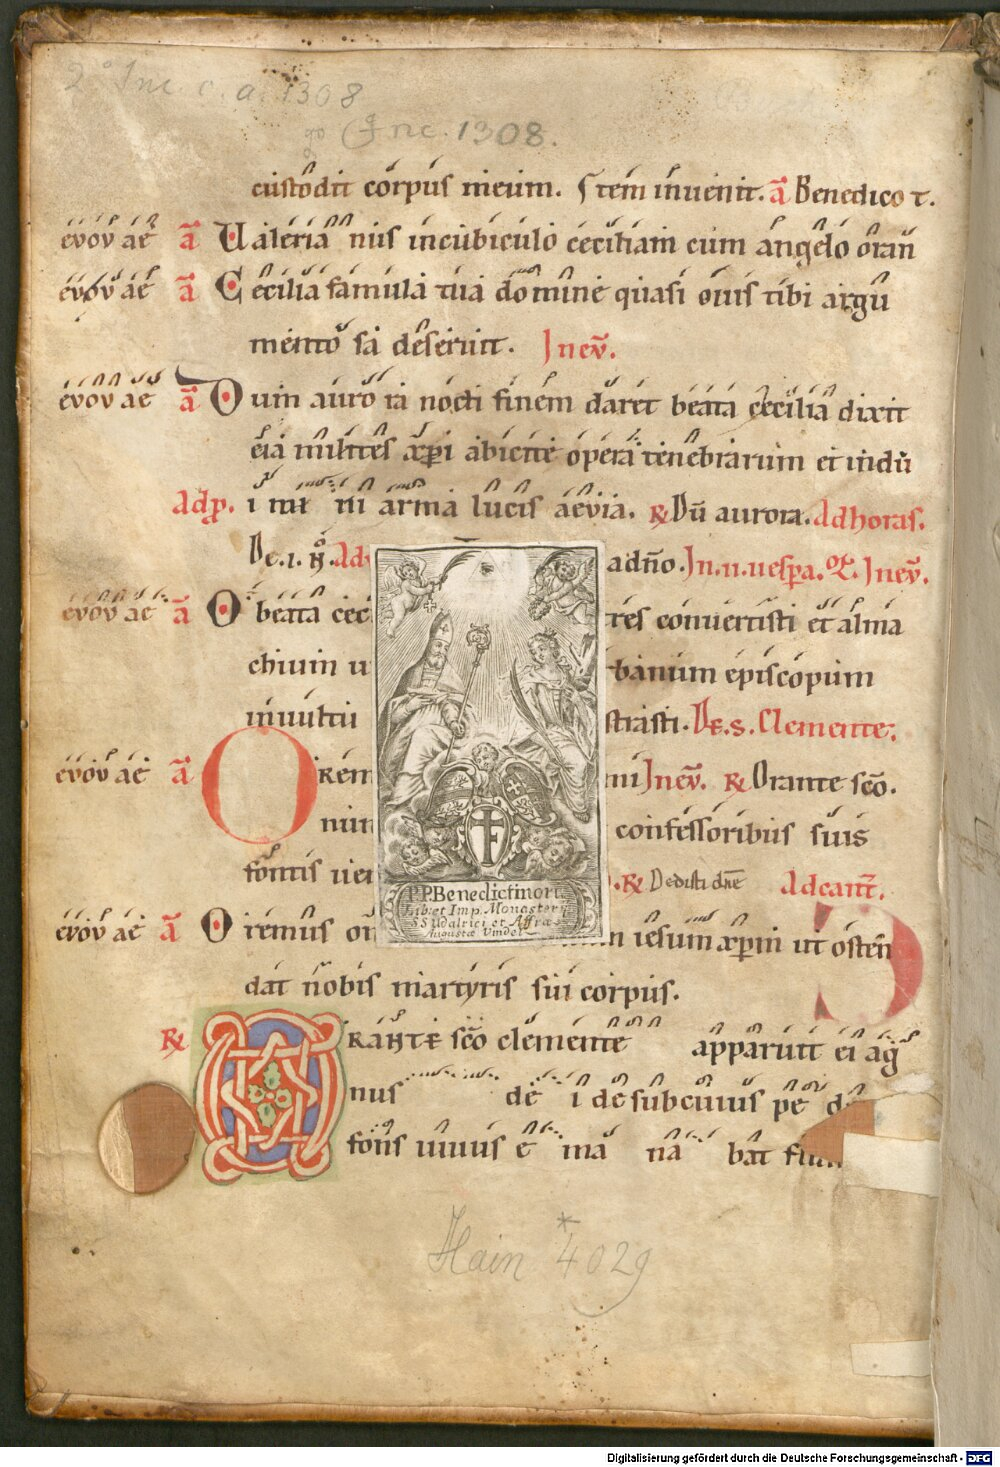 2° Inc. c. a. 1308
Inc. 1308.
custodit corpus meum. S tem inuenit. a Benedico t.
evov ae a Valeria nus in cubiculo ceciliam cum angelo oran
evov ae a Cecilia famula tua domine quasi ouis tibi argu
mento sa deseruit. In ev̄.
evov ae a Dum auro ra nocti finem daret beata cecilia dixit
eia milites xp̄i abicite opera tenebrarum et indu
ad p̄. i mi ni arma lucis aevia. ℟ Dū aurora. Ad horas.
De .i. Ad adn̄o. In .ii. uesp̄a. In ev̄.
evov ae a O beata ceci tres conuertisti et alma
chium u rbanum episcopum
in uultu strasti. De. s. Clemente.
evov ae a Orem ni In ev̄. ℟ Orante sc̄o.
num confessoribus suis
fontis uen ℟ Dedisti dn̄e Ad cant̄.
evov ae a Oremus om m iesum xp̄m ut osten
dat nobis martyris sui corpus.
℟ ORANTE sc̄o clemente apparuit ei ag
nus de i de sub cuius pe de
fons uiuus e ma na bat flu
P.P. Benedictinor:
Lib: et Imp. Monasterij
SS Udalrici et Affrae
Augustae Vindel
Hain *4029
Digitalisierung gefördert durch die Deutsche Forschungsgemeinschaft - DFG